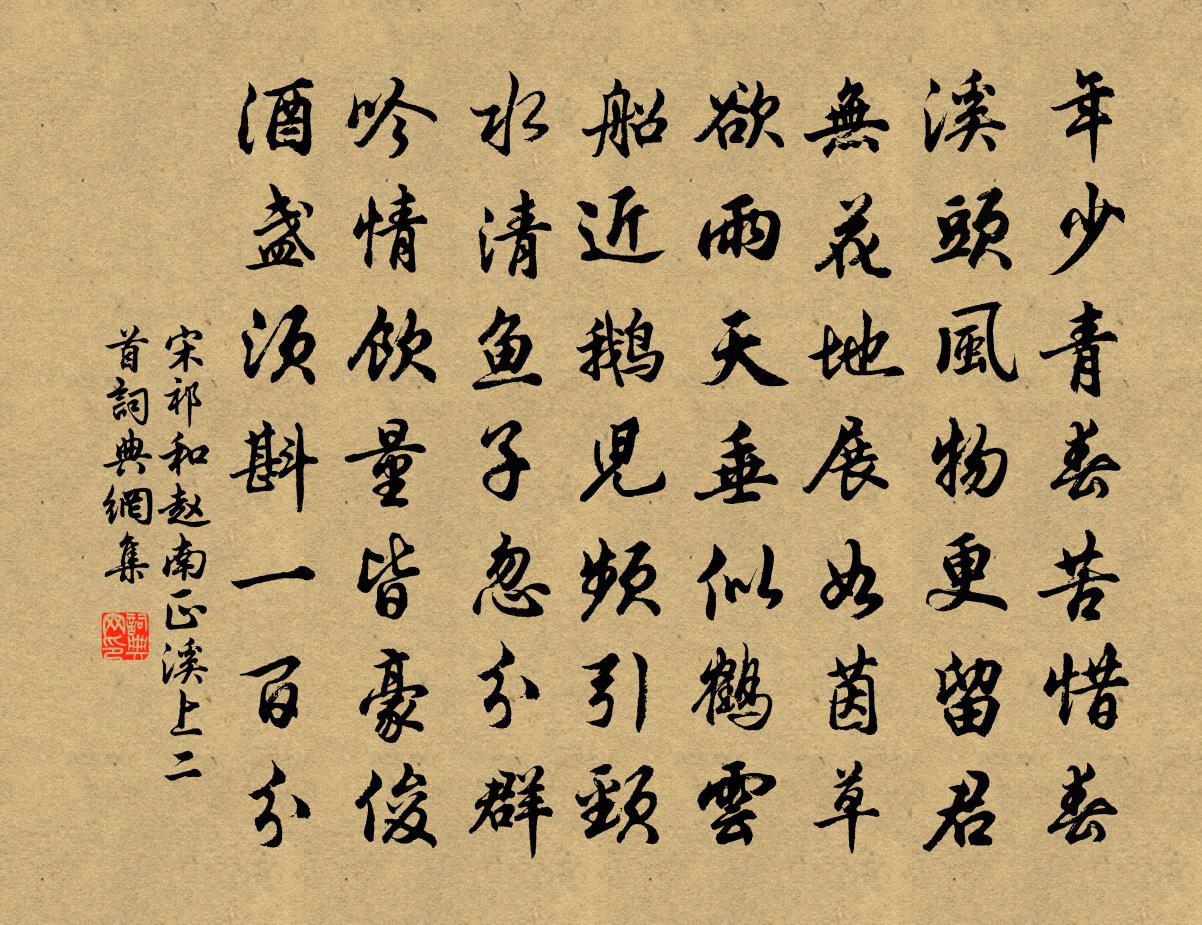 年少青春苦惜春
溪頭風物更留君
無花地展如茵草
欲雨天垂似鶴雲
船近鹅兒頻引頸
水清魚子忽分群
吟情飲量皆豪俊
酒盏須斟一百分
宋祁和赵南正溪上二
首詞典網集
詞典网印